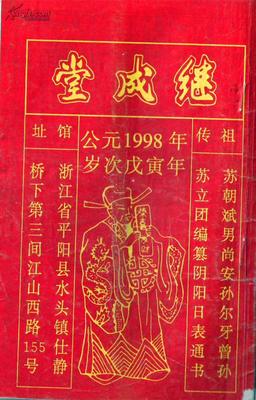 继成堂
公元1998年
岁次戊寅年
祖传
苏朝斌男尚安孙尔牙曾孙
苏立团编纂阴阳日表通书
馆址
浙江省平阳县水头镇仕静
桥下第三间江山西路155号